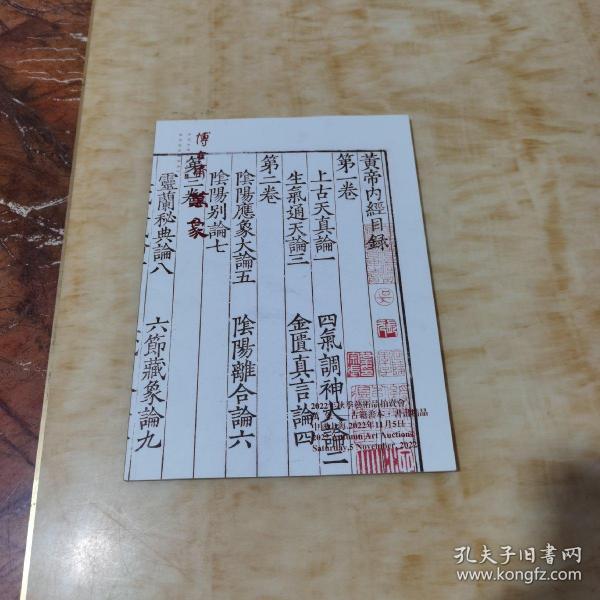 黃帝内經目錄
第一卷
上古天真論一 四氣調神大論二
生氣通天論三 金匱真言論四
第二卷
陰陽應象大論五 陰陽離合論六
陰陽別論七
第三卷
靈蘭秘典論八 六節藏象論九
博古齋 萬象
2022年秋季藝術品拍賣會
古籍善本·書畫精品
中國上海 2022年11月5日
2022 Autumn Art Auctions
Saturday,5 November, 2022
孔夫子旧书网
www.kongfz.com